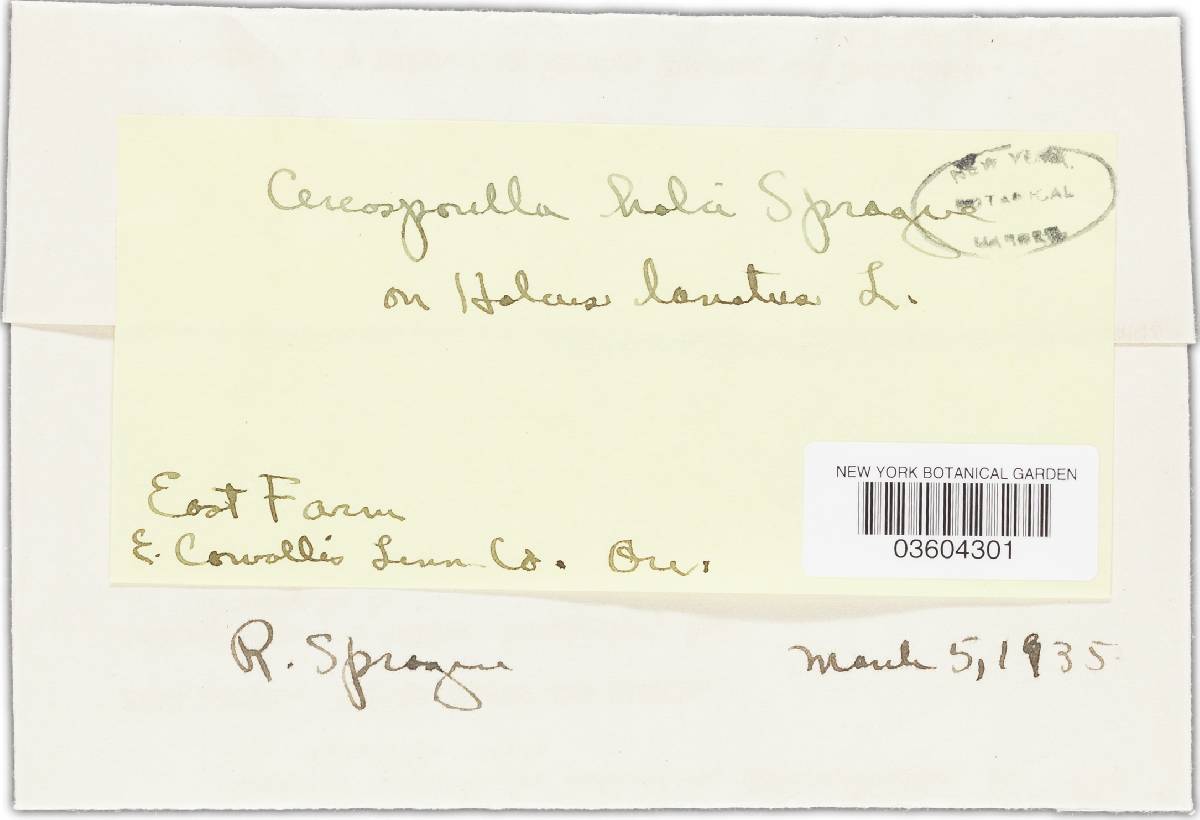 Cercosporella holci Sprague
NEW YORK
BOTANICAL
GARDEN
on Holcus lanatus L.
NEW YORK BOTANICAL GARDEN
03604301
East Farm
E. Corvallis Linn Co. Ore.
R. Sprague
March 5, 1935